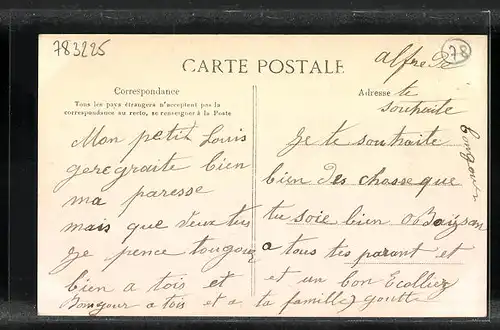 783225
78
CARTE POSTALE
Correspondance
Tous les pays étrangers n'acceptent pas la
correspondance au recto, se renseigner à la Poste
Mon petit Louis
geregraite bien
ma paresse
mais que veux tu
Je pence tougour
bien a tois et
Bonjour a tois et a la famille
Adresse te
souhaite
Je te souhaite
bien des chosse que
tu soie bien
a tous tes parant et
et un bon Ecollier